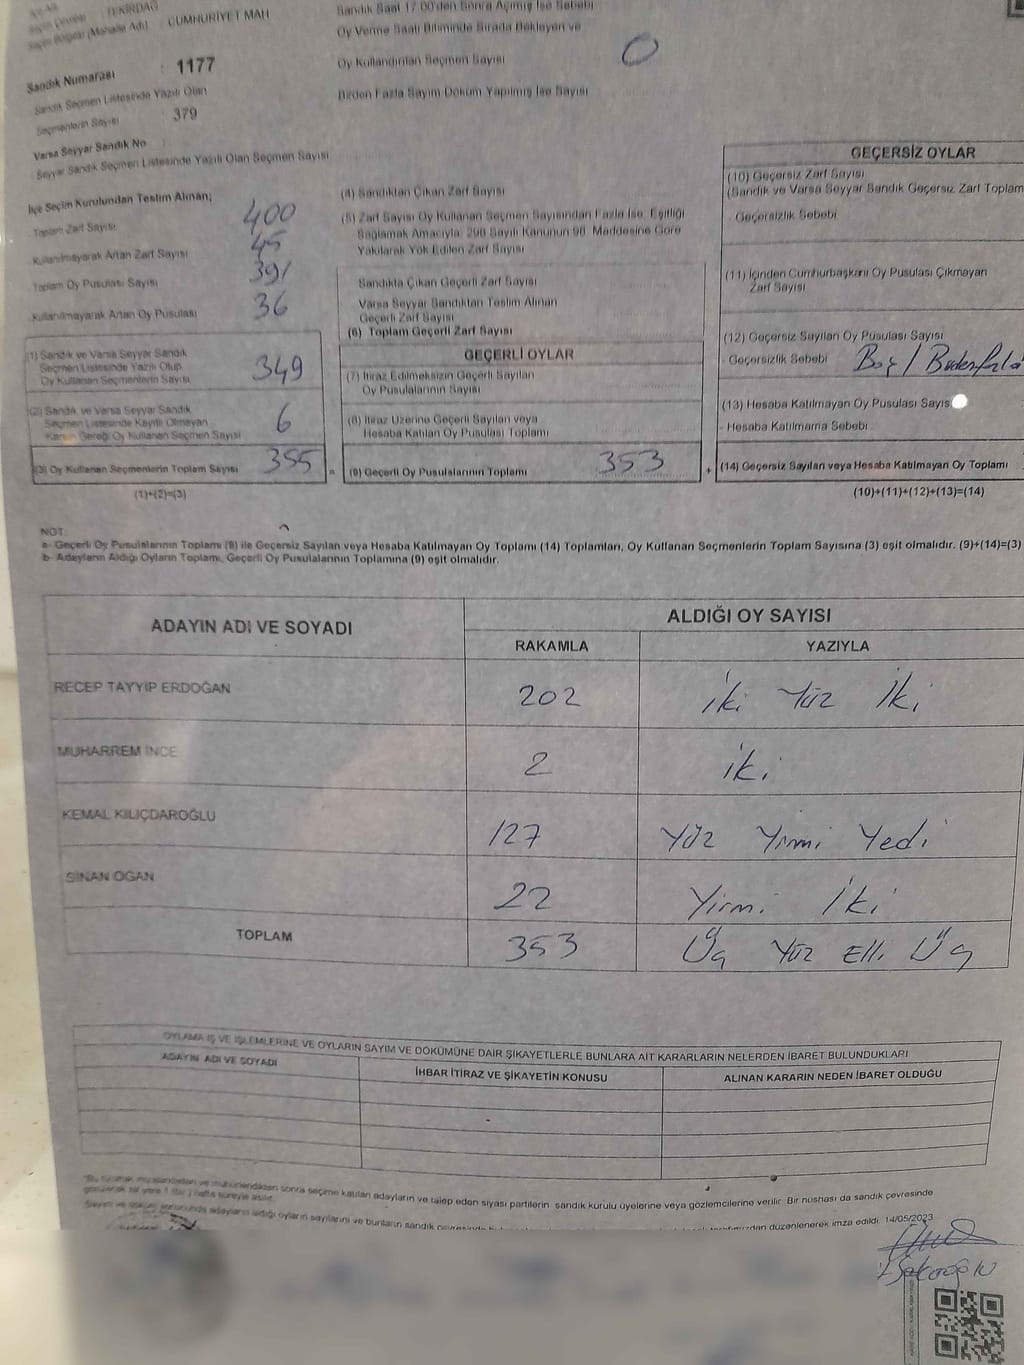 TEKİRDAĞ
Seçim Bölgesi (Mahalle Adı) : CUMHURİYET MAH
Sandık Numarası : 1177
Sandık Seçmen Listesinde Yazılı Olan
Seçmenlerin Sayısı : 379
Varsa Seyyar Sandık No
Seyyar Sandık Seçmen Listesinde Yazılı Olan Seçmen Sayısı
İlçe Seçim Kurulundan Teslim Alınan;
Toplam Zarf Sayısı 400
Kullanılmayarak Artan Zarf Sayısı 45
Toplam Oy Pusulası Sayısı 391
Kullanılmayarak Artan Oy Pusulası 36
(1) Sandık ve Varsa Seyyar Sandık
Seçmen Listesinde Yazılı Olup
Oy Kullanan Seçmenlerin Sayısı 349
(2) Sandık ve Varsa Seyyar Sandık
Seçmen Listesinde Kayıtlı Olmayan
Kanun Gereği Oy Kullanan Seçmen Sayısı 6
(3) Oy Kullanan Seçmenlerin Toplam Sayısı 355 =
(1)+(2)=(3)
Sandık Saat 17:00'den Sonra Açılmış İse Sebebi
Oy Verme Saati Bitiminde Sırada Bekleyen ve
Oy Kullandırılan Seçmen Sayısı 0
Birden Fazla Sayım Döküm Yapılmış İse Sayısı
(4) Sandıktan Çıkan Zarf Sayısı
(5) Zarf Sayısı Oy Kullanan Seçmen Sayısından Fazla İse, Eşitliği
Sağlamak Amacıyla; 298 Sayılı Kanunun 98. Maddesine Göre
Yakılarak Yok Edilen Zarf Sayısı
Sandıkta Çıkan Geçerli Zarf Sayısı
Varsa Seyyar Sandıktan Teslim Alınan
Geçerli Zarf Sayısı
(6) Toplam Geçerli Zarf Sayısı
GEÇERLİ OYLAR
(7) İtiraz Edilmeksizin Geçerli Sayılan
Oy Pusulalarının Sayısı
(8) İtiraz Üzerine Geçerli Sayılan veya
Hesaba Katılan Oy Pusulası Toplamı
(9) Geçerli Oy Pusulalarının Toplamı 353 +
GEÇERSİZ OYLAR
(10) Geçersiz Zarf Sayısı
(Sandık ve Varsa Seyyar Sandık Geçersiz Zarf Toplam
- Geçersizlik Sebebi
(11) İçinden Cumhurbaşkanı Oy Pusulası Çıkmayan
Zarf Sayısı
(12) Geçersiz Sayılan Oy Pusulası Sayısı
- Geçersizlik Sebebi Boş /
(13) Hesaba Katılmayan Oy Pusulası Sayıs
- Hesaba Katılmama Sebebi
(14) Geçersiz Sayılan veya Hesaba Katılmayan Oy Toplamı
(10)+(11)+(12)+(13)=(14)
NOT:
a- Geçerli Oy Pusulalarının Toplamı (9) ile Geçersiz Sayılan veya Hesaba Katılmayan Oy Toplamı (14) Toplamları, Oy Kullanan Seçmenlerin Toplam Sayısına (3) eşit olmalıdır. (9)+(14)=(3)
b- Adayların Aldığı Oyların Toplamı, Geçerli Oy Pusulalarının Toplamına (9) eşit olmalıdır.
ADAYIN ADI VE SOYADI ALDIĞI OY SAYISI
RAKAMLA YAZIYLA
RECEP TAYYİP ERDOĞAN 202 İki Yüz İki
MUHARREM İNCE 2 İki
KEMAL KILIÇDAROĞLU 127 Yüz Yirmi Yedi
SİNAN OĞAN 22 Yirmi İki
TOPLAM 353 Üç Yüz Elli Üç
OYLAMA İŞ VE İŞLEMLERİNE VE OYLARIN SAYIM VE DÖKÜMÜNE DAİR ŞİKAYETLERLE BUNLARA AİT KARARLARIN NELERDEN İBARET BULUNDUKLARI
ADAYIN ADI VE SOYADI İHBAR İTİRAZ VE ŞİKAYETİN KONUSU ALINAN KARARIN NEDEN İBARET OLDUĞU
sonra seçime katılan adayların ve talep eden siyasi partilerin sandık kurulu üyelerine veya gözlemcilerine verilir. Bir nüshası da sandık çevresinde
adayların aldığı oyların sayılarını ve bunların sandık düzenlenerek imza edildi. 14/05/2023